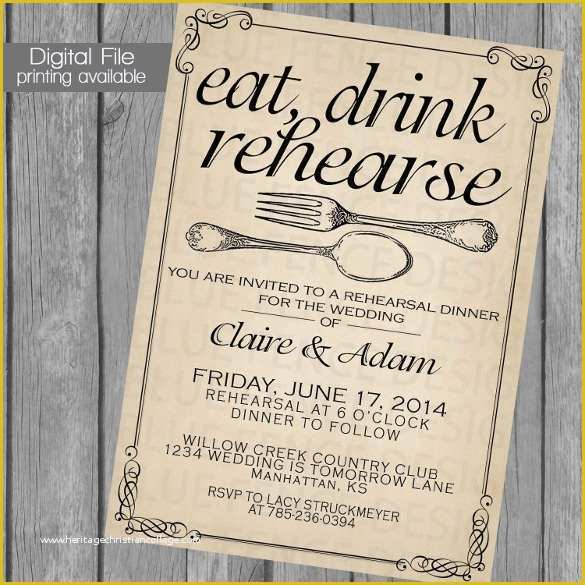 Digital File
printing available
eat, drink
rehearse
YOU ARE INVITED TO A REHEARSAL DINNER
FOR THE WEDDING
OF
Claire & Adam
FRIDAY, JUNE 17, 2014
REHEARSAL AT 6 O'CLOCK
DINNER TO FOLLOW
WILLOW CREEK COUNTRY CLUB
1234 WEDDING IS TOMORROW LANE
MANHATTAN, KS
RSVP TO LACY STRUCKMEYER
AT 785-236-0394
www.heritagechristiancollege.com